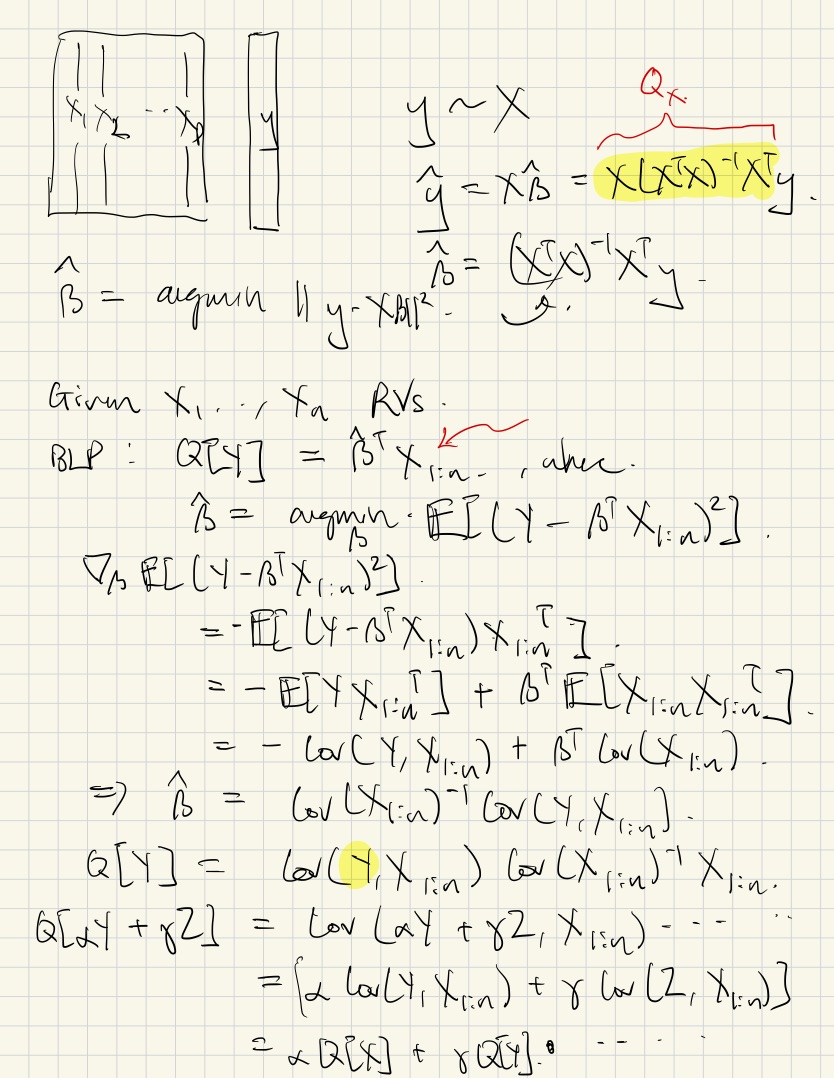 X₁ X₂ ... Xₚ y
y ~ X
Qₓ.
ŷ = Xβ̂ = X(XᵀX)⁻¹Xᵀy.
β̂ = (XᵀX)⁻¹Xᵀy.
β̂ = argmin ||y - Xβ||².
Given X₁ ..., Xₙ RVs.
BLP : Q[Y] = β̂ᵀ X₁:ₙ , where.
β̂ = argmin_β . 𝔼[(Y - βᵀX₁:ₙ)²].
∇_β 𝔼[(Y - βᵀX₁:ₙ)²].
= -𝔼[(Y - βᵀX₁:ₙ)X₁:ₙᵀ].
= -𝔼[Y X₁:ₙᵀ] + βᵀ𝔼[X₁:ₙX₁:ₙᵀ].
= - Cov(Y, X₁:ₙ) + βᵀ Cov(X₁:ₙ).
=> β̂ = Cov(X₁:ₙ)⁻¹ Cov(Y, X₁:ₙ).
Q[Y] = Cov(Y, X₁:ₙ) Cov(X₁:ₙ)⁻¹ X₁:ₙ.
Q[αY + γZ] = Cov(αY + γZ, X₁:ₙ) --- ..
= [α Cov(Y, X₁:ₙ) + γ Cov(Z, X₁:ₙ)]
= αQ[X] + γQ[Y]. -- . .